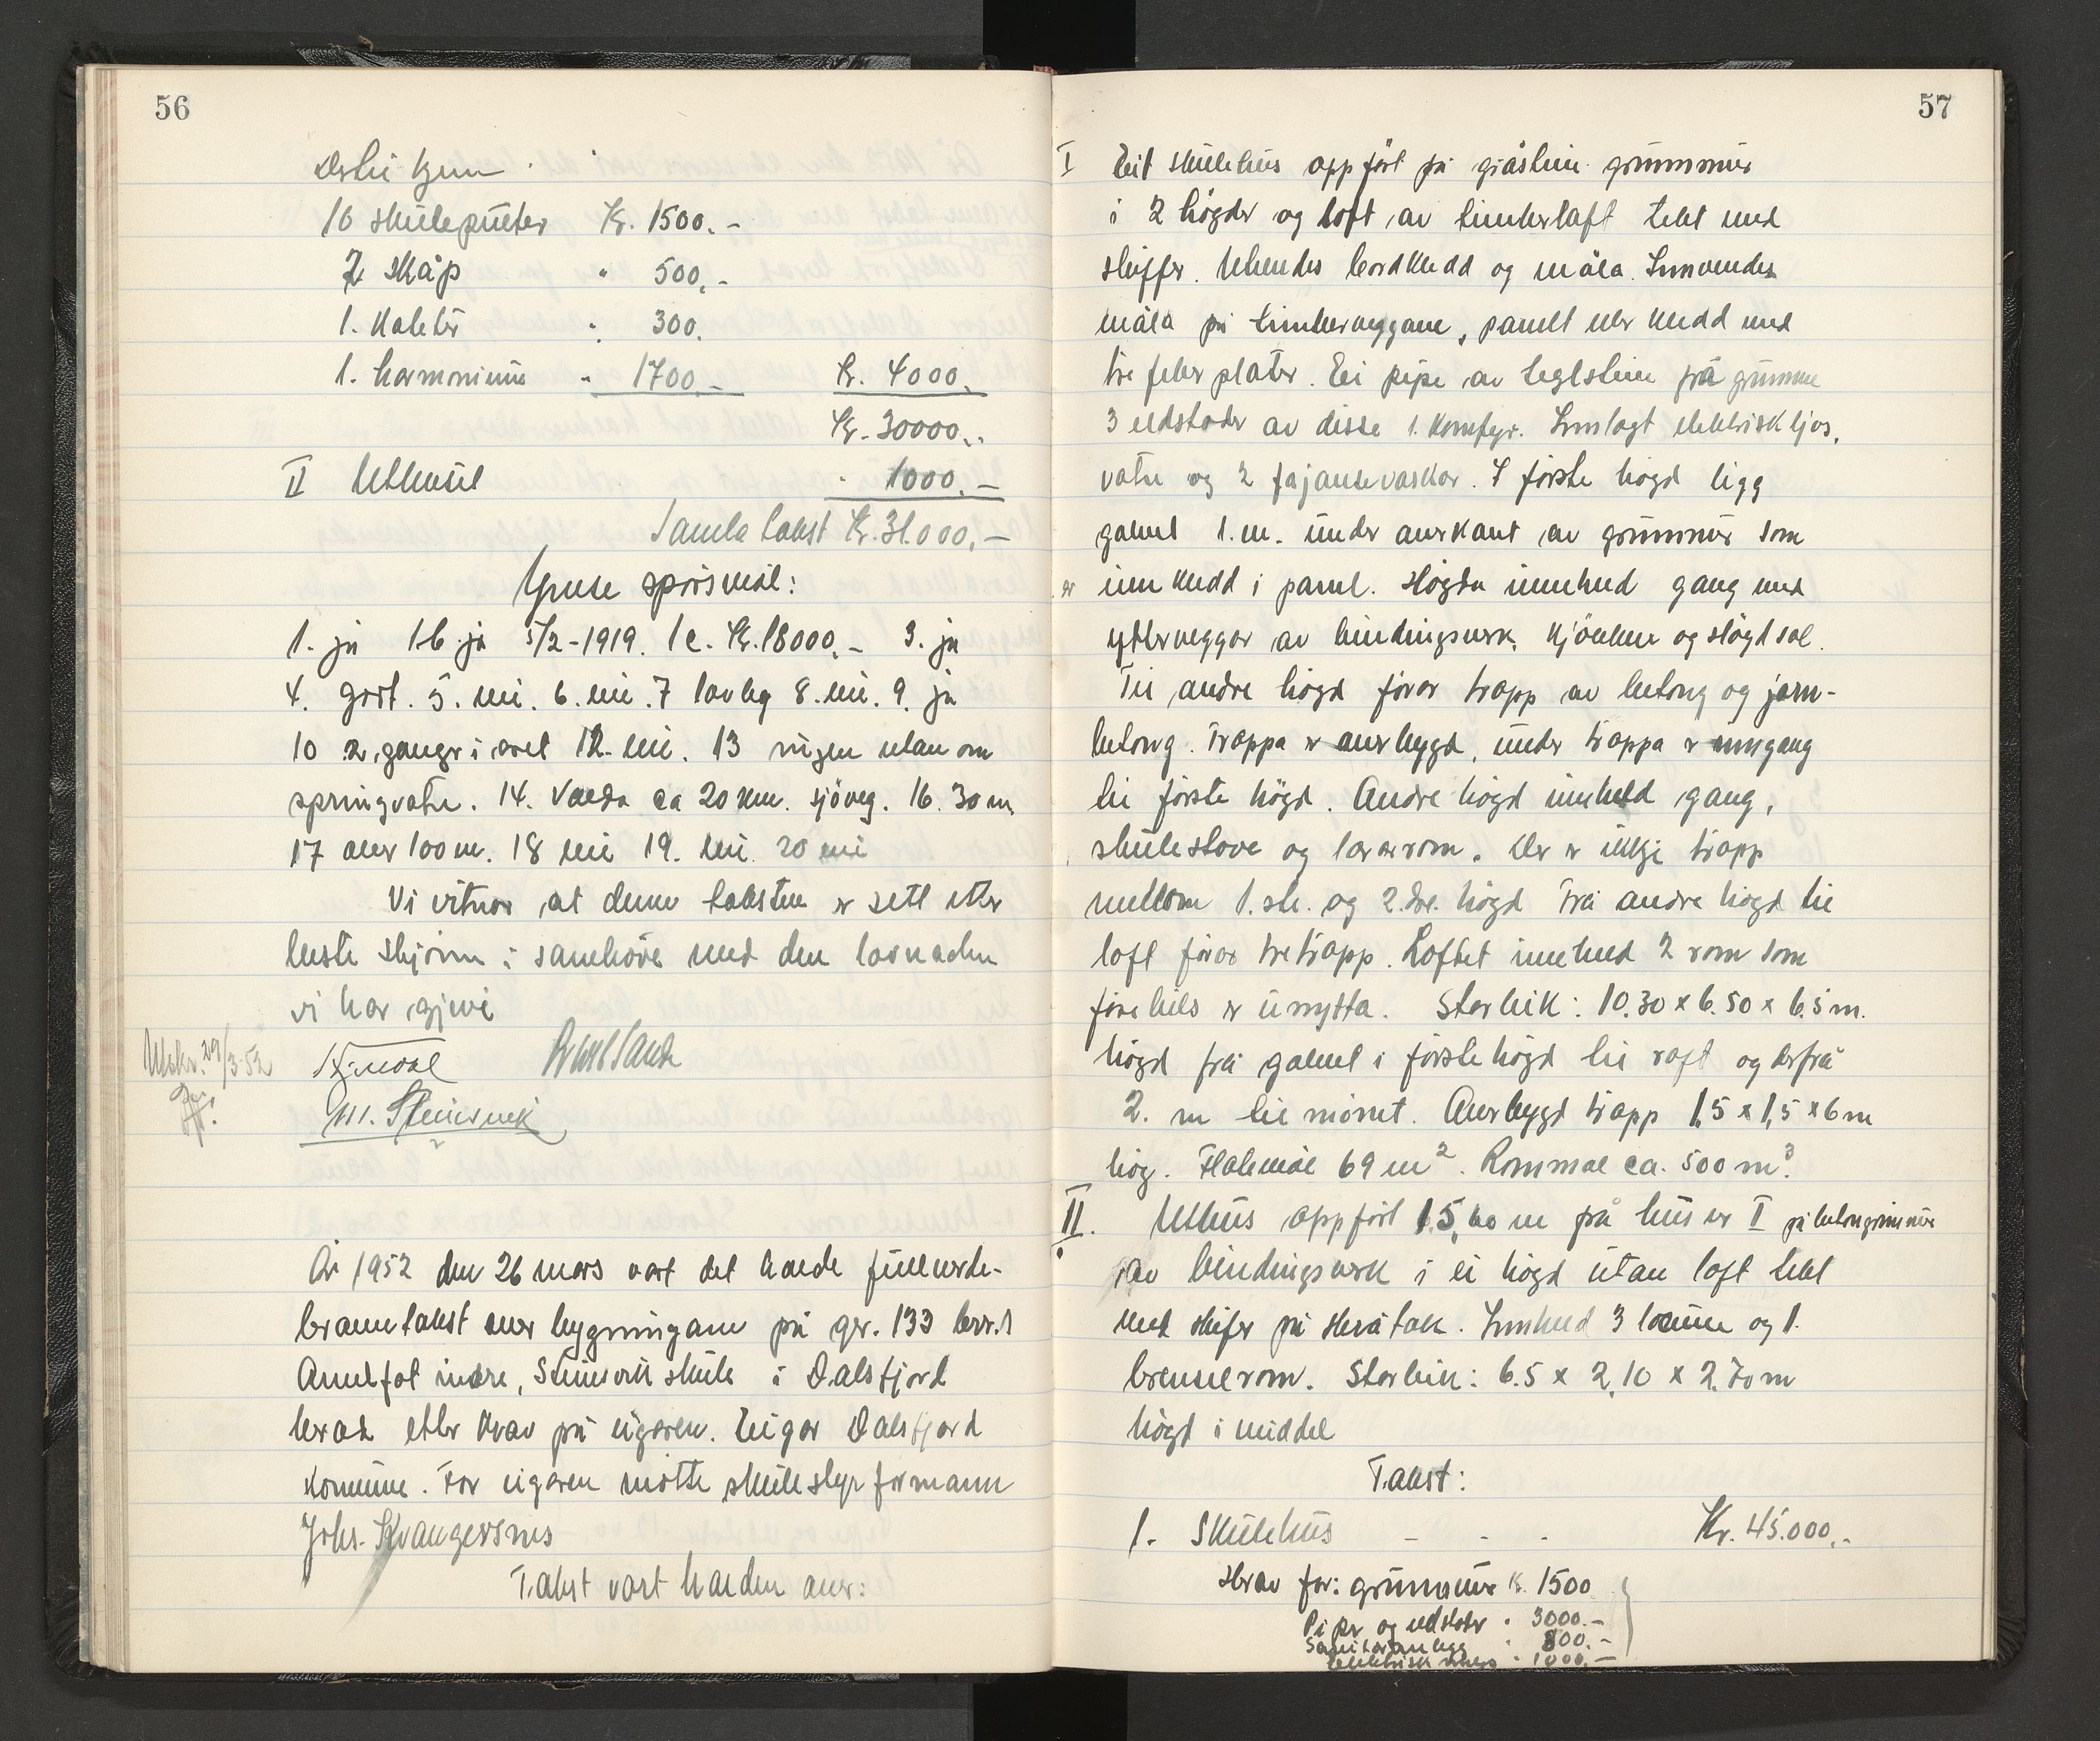 56
Dertil kjem
16 skulepulter Kr. 1500.-
2 skåp " 500.-
1. kateter " 300.
1. harmonium " 1700.- Kr. 4000.
Kr. 30000.-
II Uthusel " 1000.-
Samla takst Kr. 31.000.-
Ymse spörsmål:
1. ja 1b. ja 5/2-1919. 1c. Kr. 18000.- 3. ja
4. godt. 5. nei. 6. nei. 7 lovleg 8. nei. 9. ja
10 2 ganger i året 12. nei. 13 ingen utan om
springvatn. 14. Volda ca 20 km. sjöveg. 16. 30 m
17 over 100 m. 18 nei 19. nei. 20 nei
Vi vitnar at denne taksten er sett etter
beste skjönn i samhöve med den lovnaden
vi har gjeve
Utskr. 29/3-52
M. Steinsvik
År 1952 den 26 mars vart det halde fullverde-
branntakst over bygningane på gr. 133 br.nr. 1
Aurstfot indre, Steinsvik skule i Dalsfjord
herad etter krav på eigaren. Eigar Dalsfjord
kommune. For eigaren mötte skulestyrformann
Johs. Kvangersnes
Takst vart halden over:
57
I Eit skulehus oppfört på gråstein grunnmur
i 2 högder og loft av timberlaft tekt med
skiffer. Utvendes bordkledd og måla. Innvendes
måla på timberveggane, panelt eller kledd med
tre fiber plater. Ei pipe av teglstein frå grunnen
3 eldstader av disse 1. komfyr. Innlagt elektrisk ljos,
vatn og 2 fajansevaskar. I förste högd ligg
golvet 1. m. under overkant av grunnmur som
er innkledd i panel. Högda inneheld gang med
ytterveggar av bindingsverk, kjöken og slöydsal.
Til andre högd förer trapp av betong og jarn-
betong. Trappa er overbygd, under trappa er inngang
til förste högd. Andre högd inneheld gang,
skulestove og lærarrom. Der er ikkje trapp
mellom 1.ste. og 2.dre. högd Frå andre högd til
loft förer tretrapp. Loftet inneheld 2 rom som
förebels er unytta. Storleik: 10.30 x 6.50 x 6.5 m.
högd frå golvet i förste högd til raft og derfrå
2. m til mönet. Overbygd trapp 1,5 x 1,5 x 6 m
hög. Flatemål 69 m². Rommål ca. 500 m³.
II. Uthus oppfört 15,60 m frå hus nr I på betongrunnmur
av bindingsverk i ei högd utan loft tekt
med skifer på skråtak. Innheld 3 locum og 1.
brenselrom. Storleik: 6.5 x 2,10 x 2.70 m
högd i middel
Takst:
1. Skulehus - - - Kr. 45.000.-
Herav for: grunnmur Kr. 1500
Piper og eldstader " 3000.-
Sanitæranlegg " 800.-
Elektrisk anlegg " 1000.-